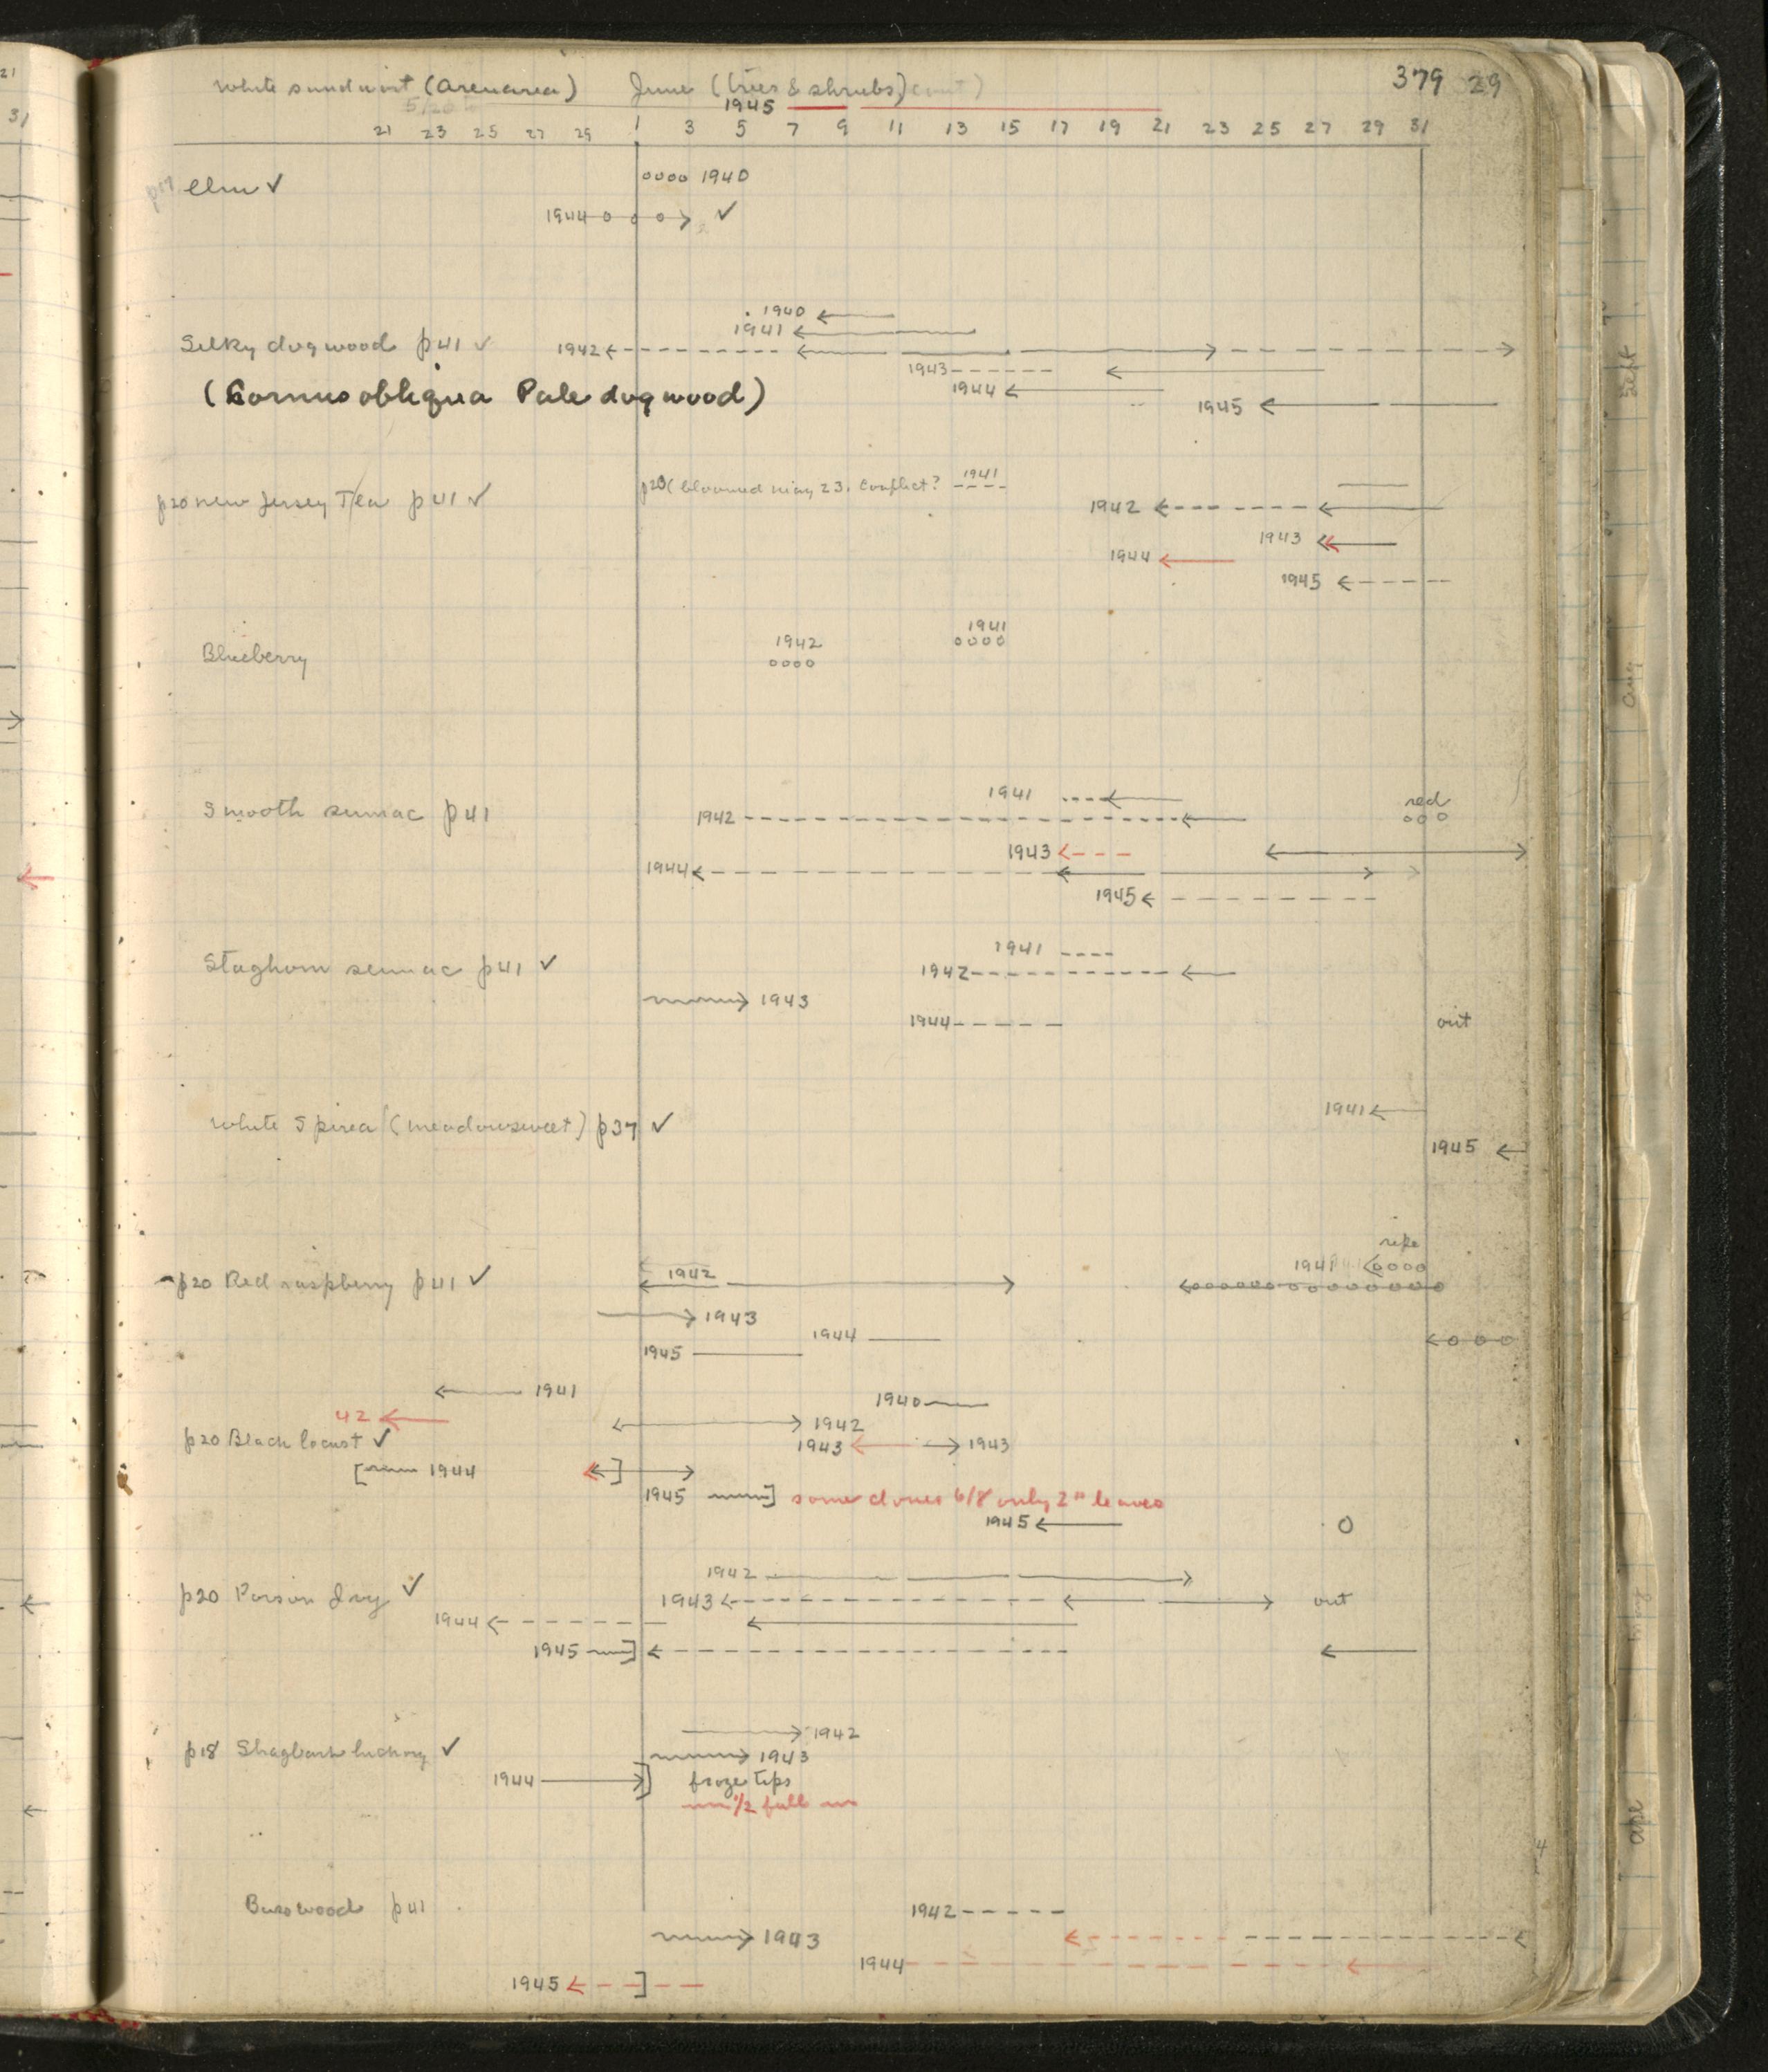 379 29
White sandwort (Arenaria) June (trees & shrubs) (cont)
5/20
1945
21 23 25 27 29 1 3 5 7 9 11 13 15 17 19 21 23 25 27 29 31
p19 Elm ✓ 1940
1944 ✓
1940
1941
Silky dogwood p41 ✓ 1942
1943
(Cornus obliqua Pale dogwood) 1944
1945
p20 (bloomed May 23. Conflict? 1941
p20 New Jersey Tea p41 ✓ 1942
1943
1944
1945
1941
1942
Blueberry
1941 red
Smooth sumac p41 1942
1943
1944
1945
1941
Staghorn sumac p41 ✓ 1942
1943
1944 out
1941
White Spirea (meadowsweet) p37 ✓
1945
ripe
1941
p20 Red raspberry p41 ✓ 1942
1943
1944
1945
1941 1940
42 1942
p20 Black locust ✓ 1943 1943
1944
1945 some clones 6/8 only 2" leaves
1945
1942
p20 Poison Ivy ✓ 1943 out
1944
1945
1942
p18 Shagbark hickory ✓ 1943
1944 froze tips
1/2 full
Basswood p41 1942
1943
1944
1945
21
31
Sept
Aug
May
Apr
4